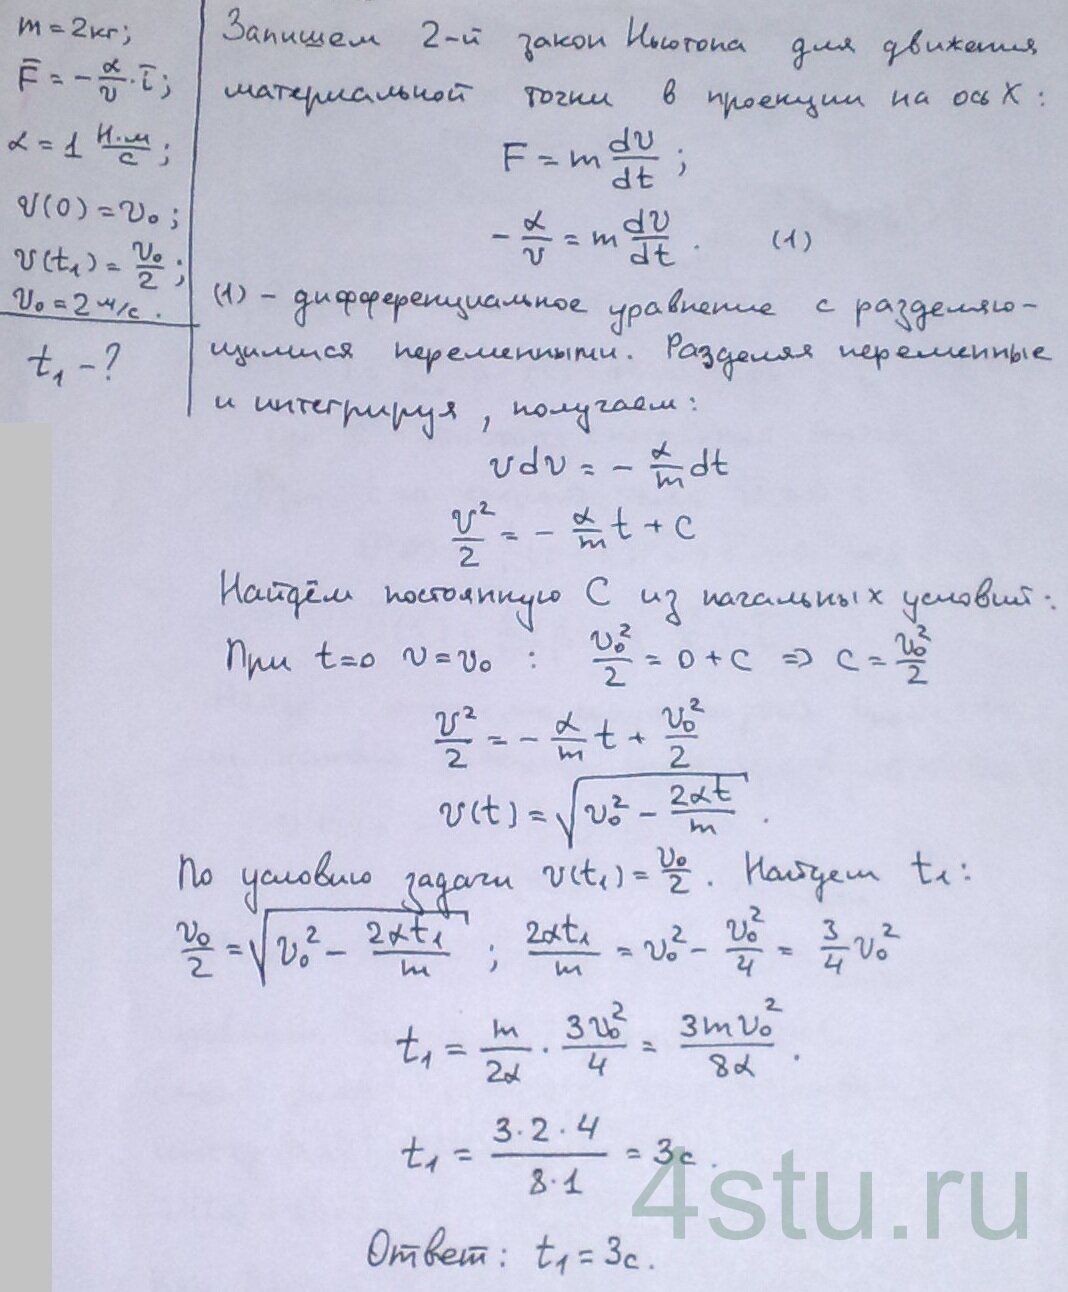 m = 2кг;
F̅ = - α/v · i̅;
α = 1 Н·м/с;
v(0) = v₀;
v(t₁) = v₀/2;
v₀ = 2 м/с.
t₁ - ?
Запишем 2-й закон Ньютона для движения
материальной точки в проекции на ось X:
F = m dv/dt ;
- α/v = m dv/dt . (1)
(1) - дифференциальное уравнение с разделяю-
щимися переменными. Разделяя переменные
и интегрируя, получаем:
v dv = - α/m dt
v²/2 = - α/m t + C
Найдём постоянную C из начальных условий:
При t=0 v = v₀ : v₀²/2 = 0 + C => C = v₀²/2
v²/2 = - α/m t + v₀²/2
v(t) = √(v₀² - 2αt/m) .
По условию задачи v(t₁) = v₀/2 . Найдем t₁:
v₀/2 = √(v₀² - 2αt₁/m) ; 2αt₁/m = v₀² - v₀²/4 = 3/4 v₀²
t₁ = m/2α · 3v₀²/4 = 3mv₀²/8α .
t₁ = 3·2·4/8·1 = 3с.
Ответ: t₁ = 3с.
4stu.ru